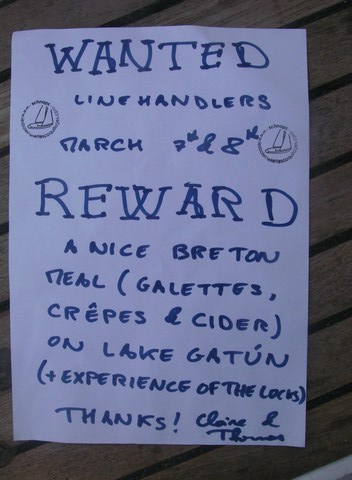 WANTED
LINE HANDLERS
MARCH 7th & 8th
REWARD
A NICE BRETON
MEAL (GALETTES,
CRÊPES & CIDER)
ON LAKE GATÚN
(+ EXPERIENCE OF THE LOCKS)
THANKS! Claire &
Thomas